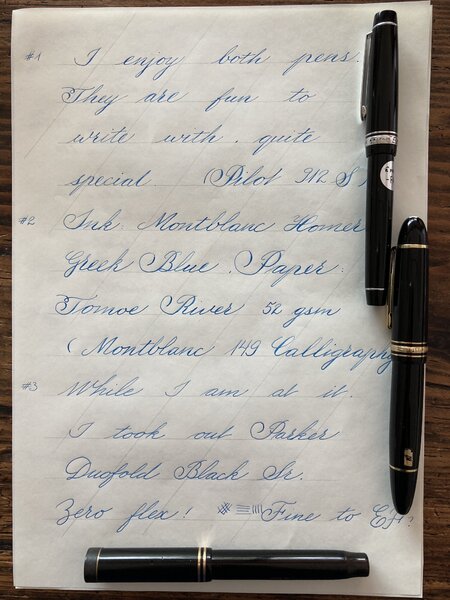 #1 I enjoy both pens.
They are fun to
write with. quite
special. (Pilot 912 S)
#2 Ink: Montblanc Homer
Greek Blue. Paper:
Tomoe River 52 gsm
(Montblanc 149 Calligraphy
#3 While I am at it.
I took out Parker
Duofold Black Sr.
Zero flex! Fine to EF?